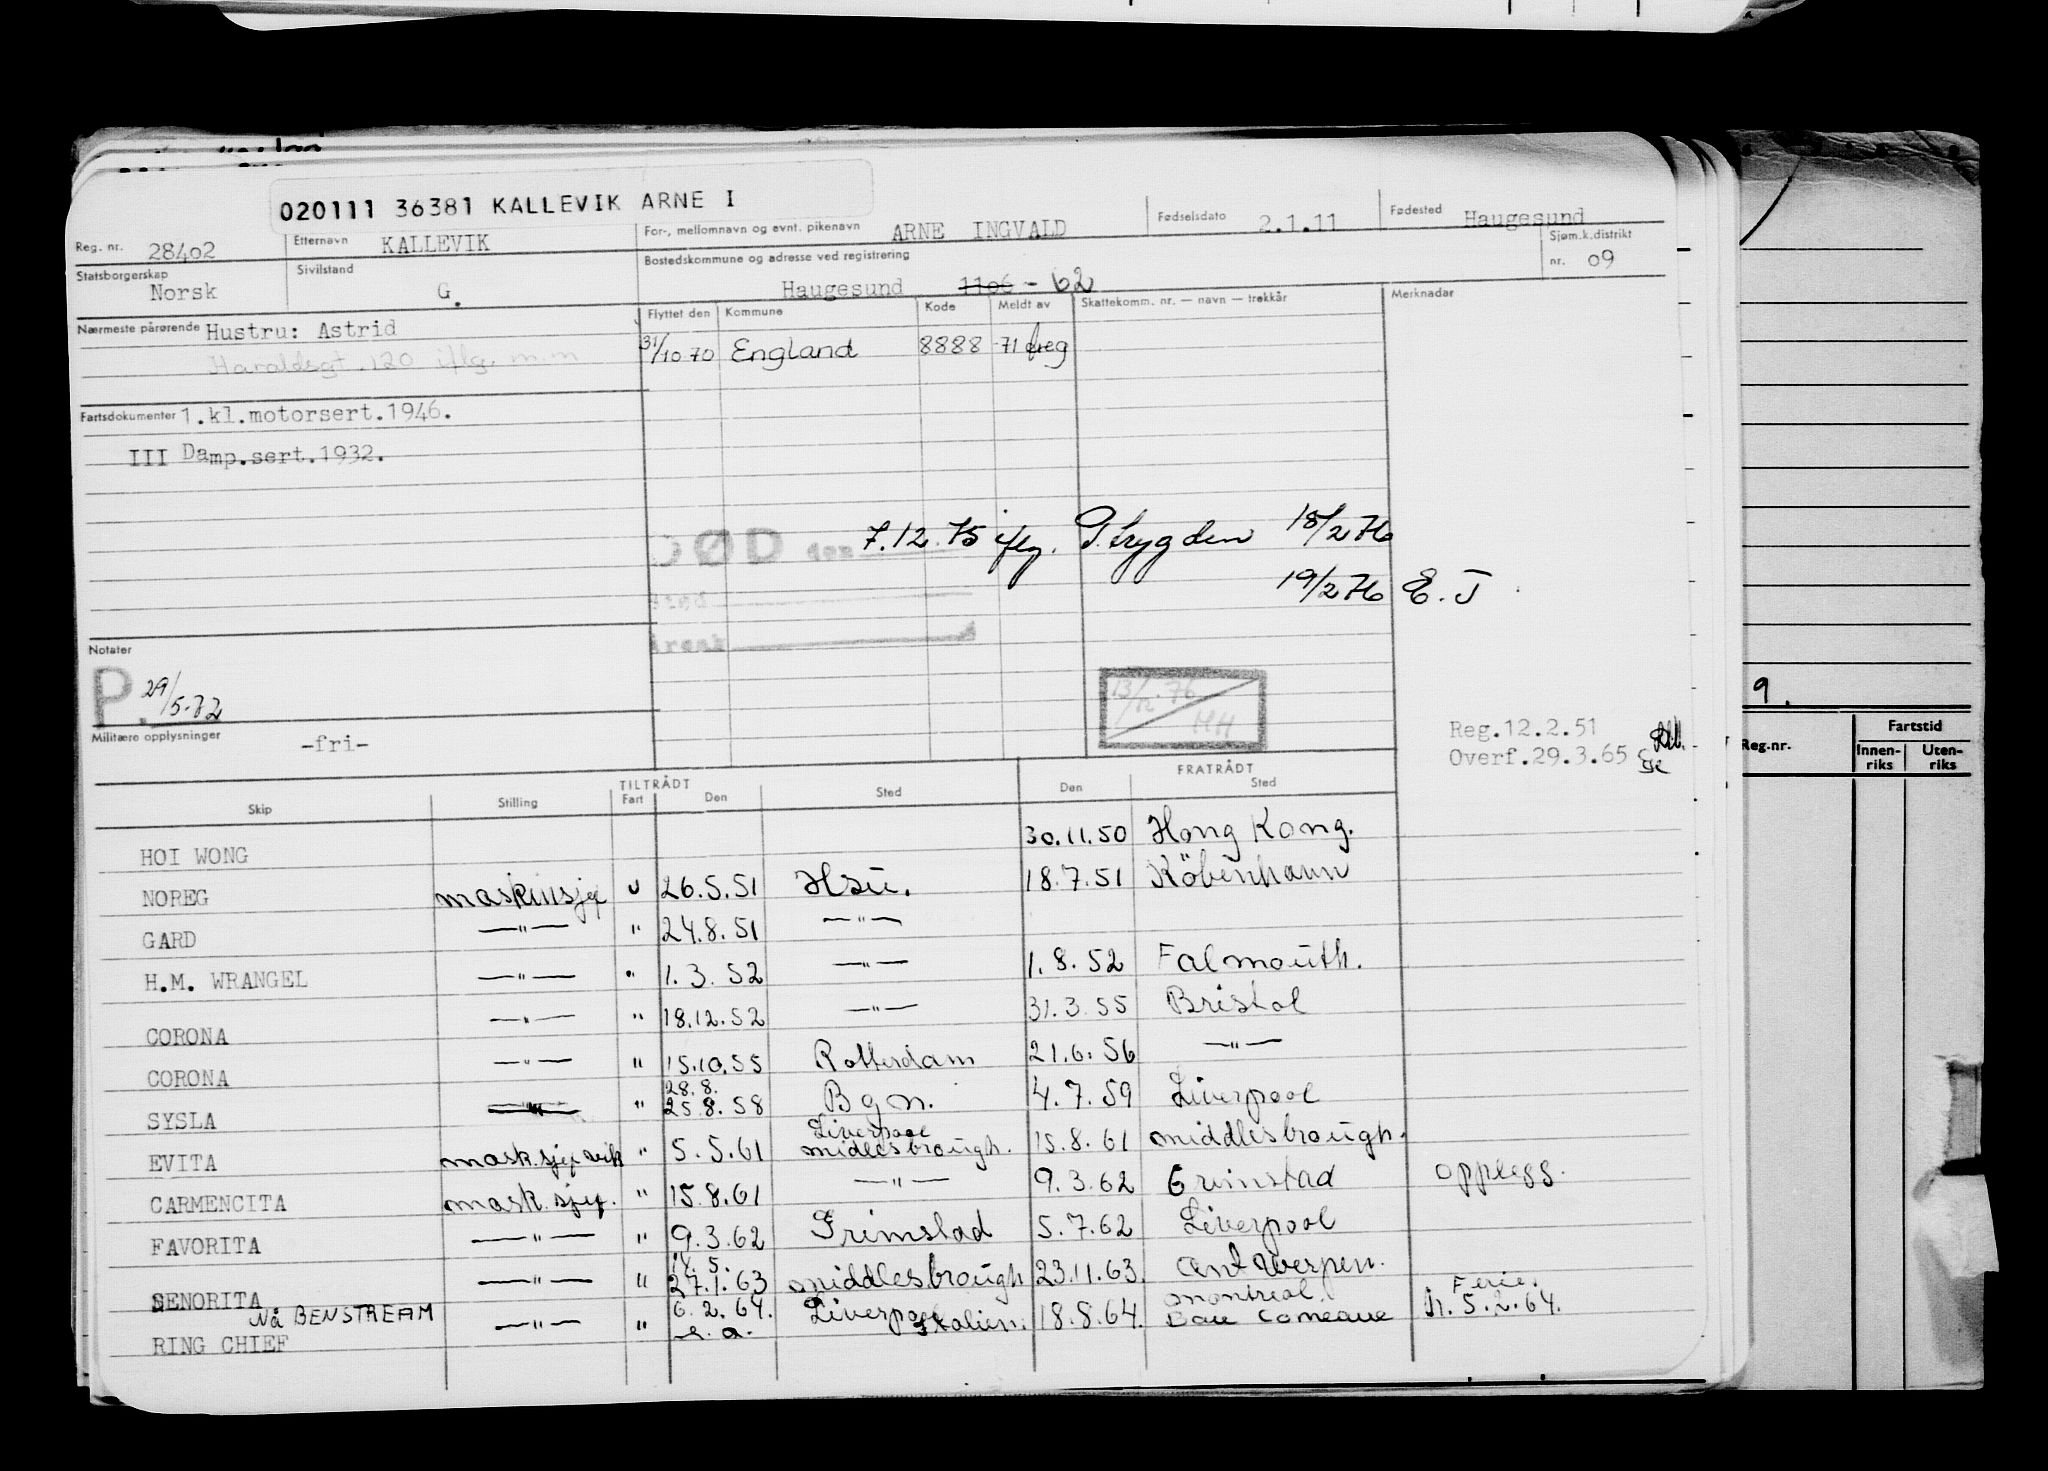 020111 36381 KALLEVIK ARNE I
Reg. nr. 28402 Etternavn KALLEVIK For-, mellomnavn og evnt. pikenavn ARNE INGVALD Fødselsdato 2.1.11 Fødested Haugesund
Statsborgerskap Norsk Sivilstand G. Bostedskommune og adresse ved registrering Haugesund 1106 - 62 Sjøm.k.distrikt nr. 09
Nærmeste pårørende Hustru: Astrid Flyttet den Kommune Kode Meldt av Skattekomm. nr. — navn — trekkår Merknadar
Haraldsgt. 120 iflg. m.m 31/10 70 England 8888 71 freg
Fartsdokumenter 1.kl.motorsert.1946.
III Damp.sert.1932.
DØD den 7.12.75 iflg. P.trygden 18/2 76
Sted 19/2 76 E. J
Notater
P. 29/5-72 13/12.76 HH
Militære opplysninger -fri- Reg.12.2.51
Overf.29.3.65
TILTRÅDT FRATRÅDT
Skip Stilling Fart Den Sted Den Sted
HOI WONG 30.11.50 Hong Kong.
NOREG maskinsjef u 26.5.51 Hsu. 18.7.51 Köbenhavn
GARD —"— " 24.8.51 —"—
H.M. WRANGEL —"— " 1.3.52 —"— 1.8.52 Falmouth.
CORONA —"— " 18.12.52 —"— 31.3.55 Bristol
CORONA —"— " 15.10.55 Rotterdam 21.6.56 —"—
28.8.
SYSLA —"— " 25.8.58 Bgn. 4.7.59 Liverpool
Liverpool
EVITA mask.sjef vik " 5.5.61 midlesbrough. 15.8.61 middlesbrough.
CARMENCITA mask.sjef. " 15.8.61 —"— 9.3.62 Grimstad opplegg.
FAVORITA —"— " 9.3.62 Grimstad 5.7.62 Liverpool
14.5.
SENORITA —"— " 27.1.63 middlesbrough 23.11.63. Antwerpen.
Nå BENSTREAM 6.2.64. Montreal. Ferie.
RING CHIEF —"— " Liverpool Italien. 18.8.64. Baie Comeaue h. 5.2.64.
9.
Reg.nr. Fartstid
Innen-riks Uten-riks